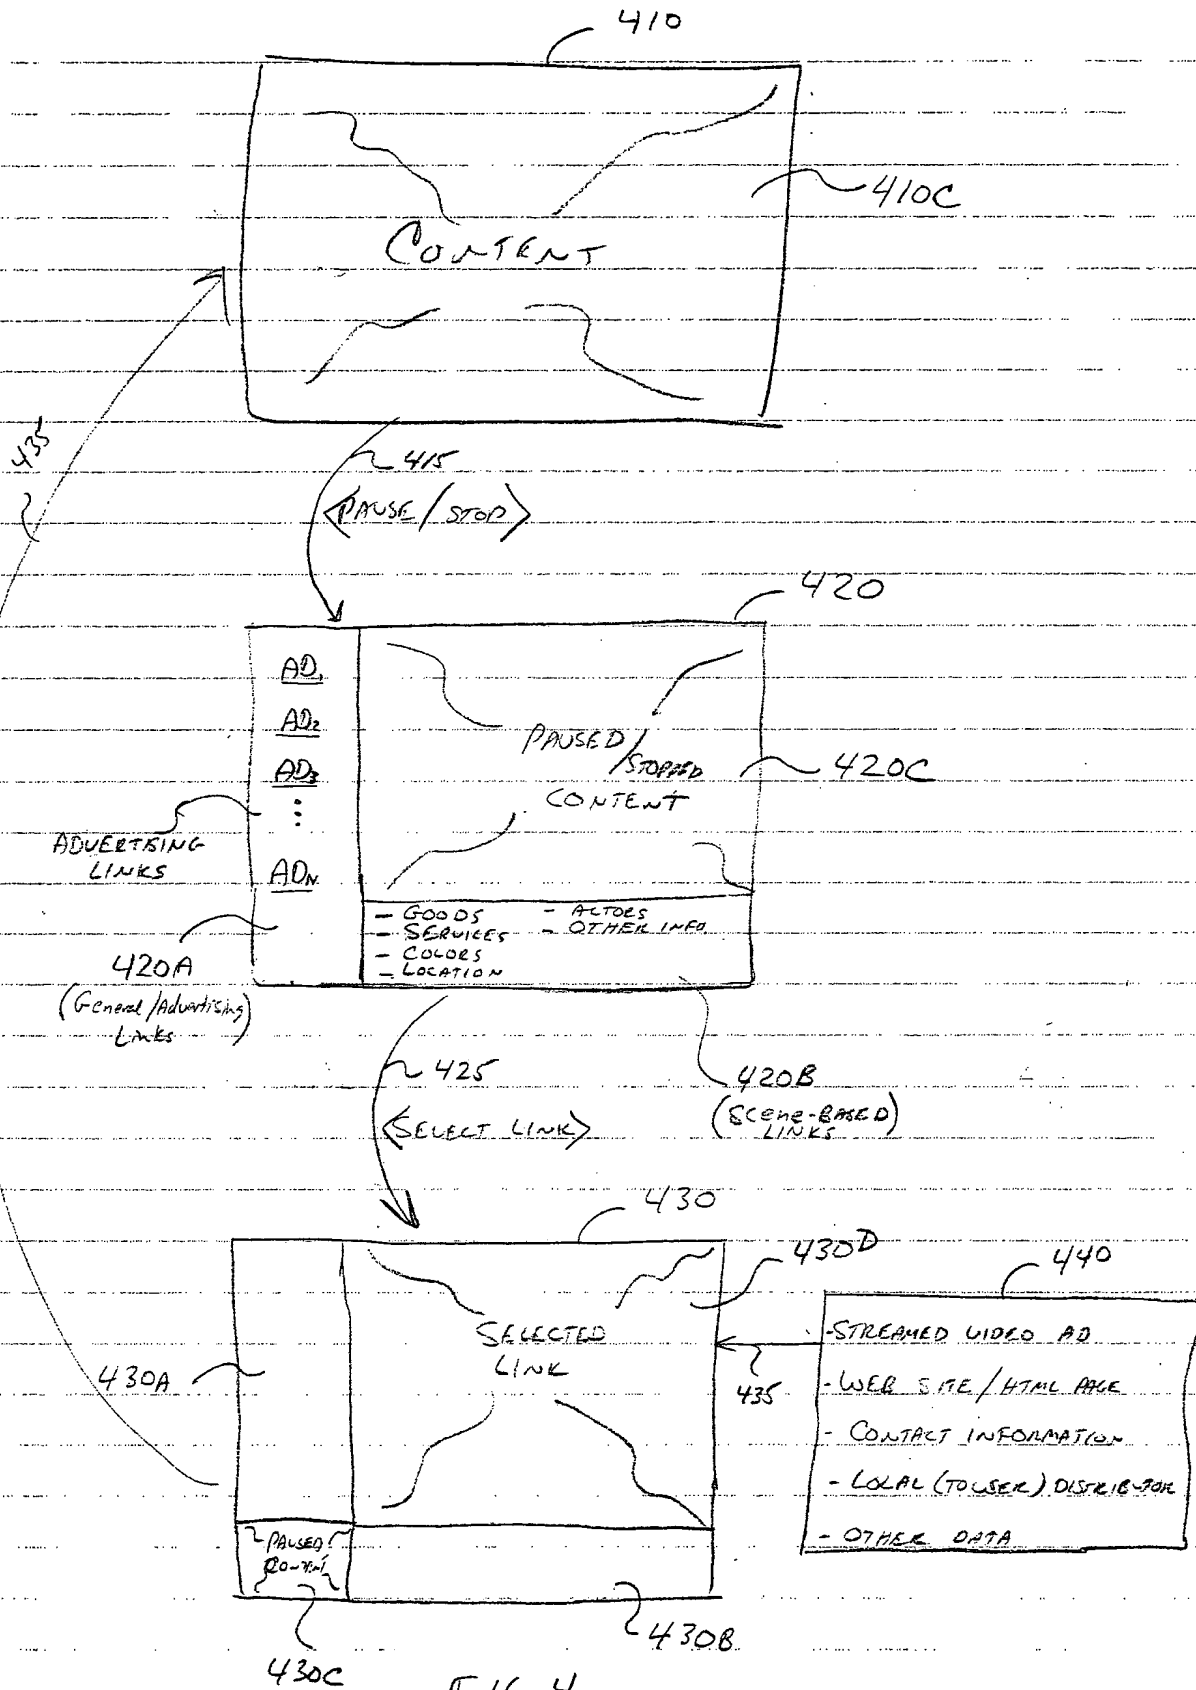 410
410C
CONTENT
435
415
<PAUSE/STOP>
420
AD1
AD2
AD3
...
ADN
PAUSED/
STOPPED
CONTENT
420C
ADVERTISING
LINKS
- GOODS
- SERVICES
- COLORS
- LOCATION
- ACTORS
- OTHER INFO.
420A
(General/Advertising
Links)
425
<SELECT LINK>
420B
(SCENE-BASED
LINKS)
430
430D
440
SELECTED
LINK
430A
435
- STREAMED VIDEO AD
- WEB SITE/HTML PAGE
- CONTACT INFORMATION
- LOCAL (TO USER) DISTRIBUTOR
- OTHER DATA
PAUSED
CONTENT
430B
430C
FIG. 4